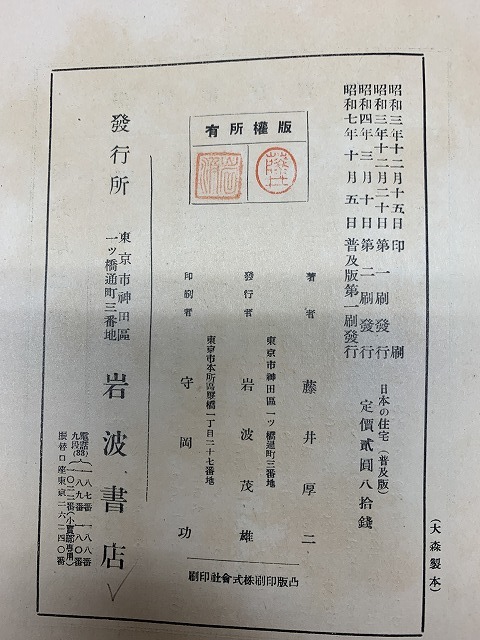 昭和三年十二月十五日印刷
昭和三年十二月二十日第一刷發行
昭和四年三月十日第二刷發行
昭和七年十月五日普及版第一刷發行
日本の住宅(普及版)
定價貳圓八拾錢
版權所有
藤井
岩波
著者 藤井厚二
東京市神田區一ッ橋通町三番地
發行者 岩波茂雄
東京市本所區厩橋一丁目二十七番地
印刷者 守岡功
凸版印刷株式會社印刷
發行所
東京市神田區
一ッ橋通町三番地
岩波書店
電話九段(88)
一八七番 一八八番
一八九番 一八〇番
一〇二二番(小賣部專用)
振替口座東京二六二四〇番
(大森製本)